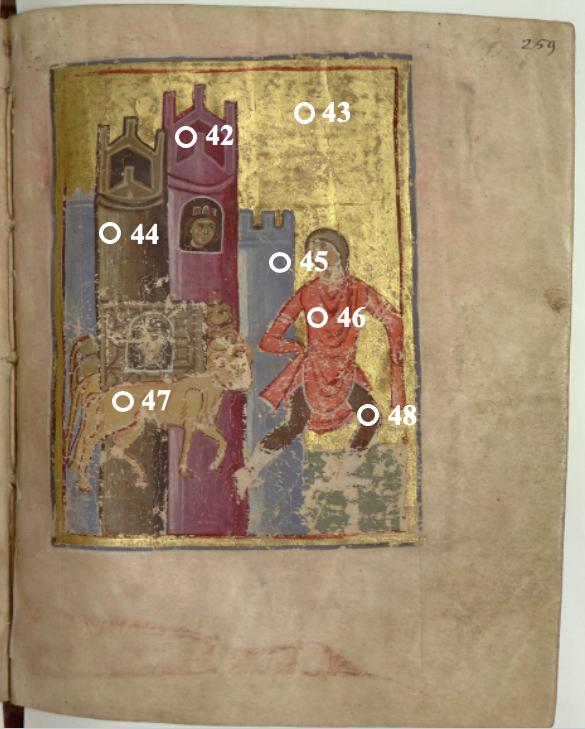 259
43
42
44
45
46
47
48